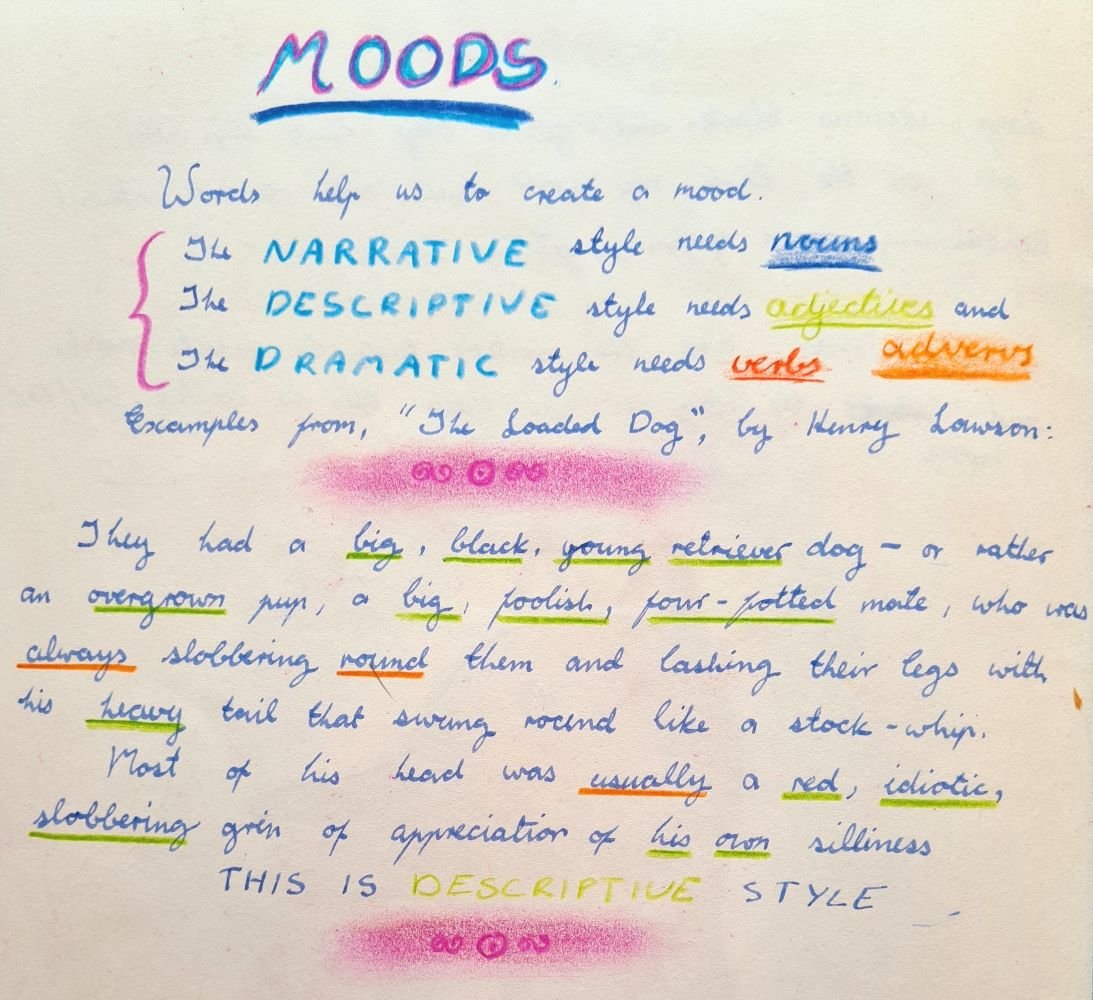 MOODS
Words help us to create a mood.
The NARRATIVE style needs nouns
The DESCRIPTIVE style needs adjectives and
The DRAMATIC style needs verbs adverbs
Examples from, "The Loaded Dog", by Henry Lawson:
They had a big, black, young retriever dog - or rather
an overgrown pup, a big, foolish, four-potted mate, who was
always slobbering round them and lashing their legs with
his heavy tail that swung round like a stock-whip.
Most of his head was usually a red, idiotic,
slobbering grin of appreciation of his own silliness
THIS IS DESCRIPTIVE STYLE